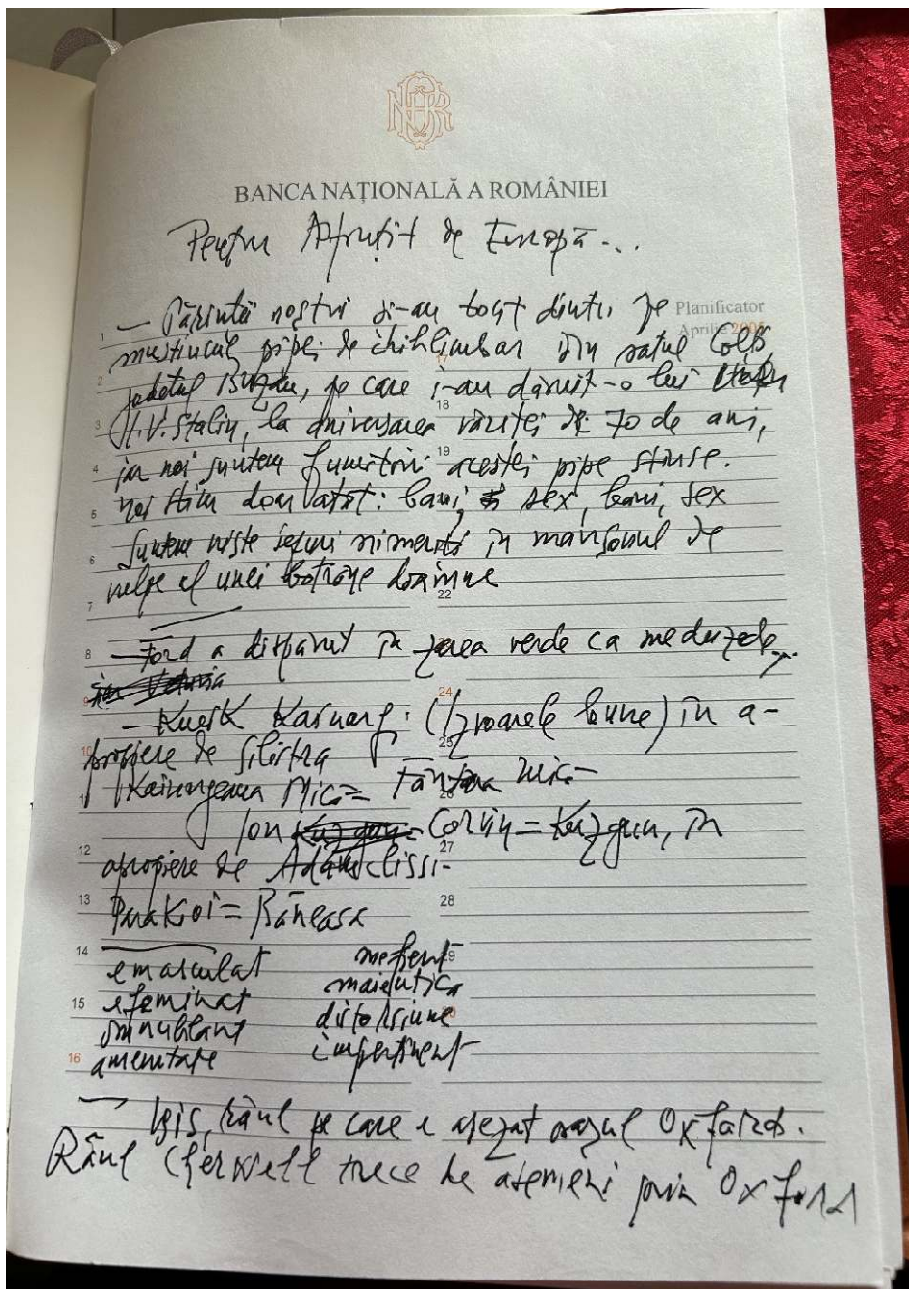 BANCA NAȚIONALĂ A ROMÂNIEI
Pentru Asfințit de Europă...
Planificator
Aprilie 2005
— Părinții noștri și-au tocit dinții pe
muștiucul pipei de chihlimbar din satul Colți
județul Buzău, pe care i-au dăruit-o lui
I.V. Stalin, la aniversarea vârstei de 70 de ani,
iar noi suntem fumătorii acestei pipe stinse.
Noi știm doar atât: bani, sex, bani, sex
Suntem niște securi nimerite în manșonul de
vulpe al unei bătrâne doamne
— Ford a dispărut în zarea verde ca meduzele
— Kucik Kainarg: (Izvoarele bune) în a-
propiere de Silistra
Kainargeaua Mică = Fântâna Mică
Ion Corvin = Kuzgun, în
apropiere de Adamclissi
Parakioi = Băneasa
emasculat mefient
efeminat maieutica
obnubilant distorsiune
amenitate impertinent
— Isis, râul pe care e așezat orașul Oxford.
Râul Cherwell trece de asemeni prin Oxford
1 2 3 4 5 6 7 8 10 12 13 14 15 16
18 19 22 24 25 26 27 28